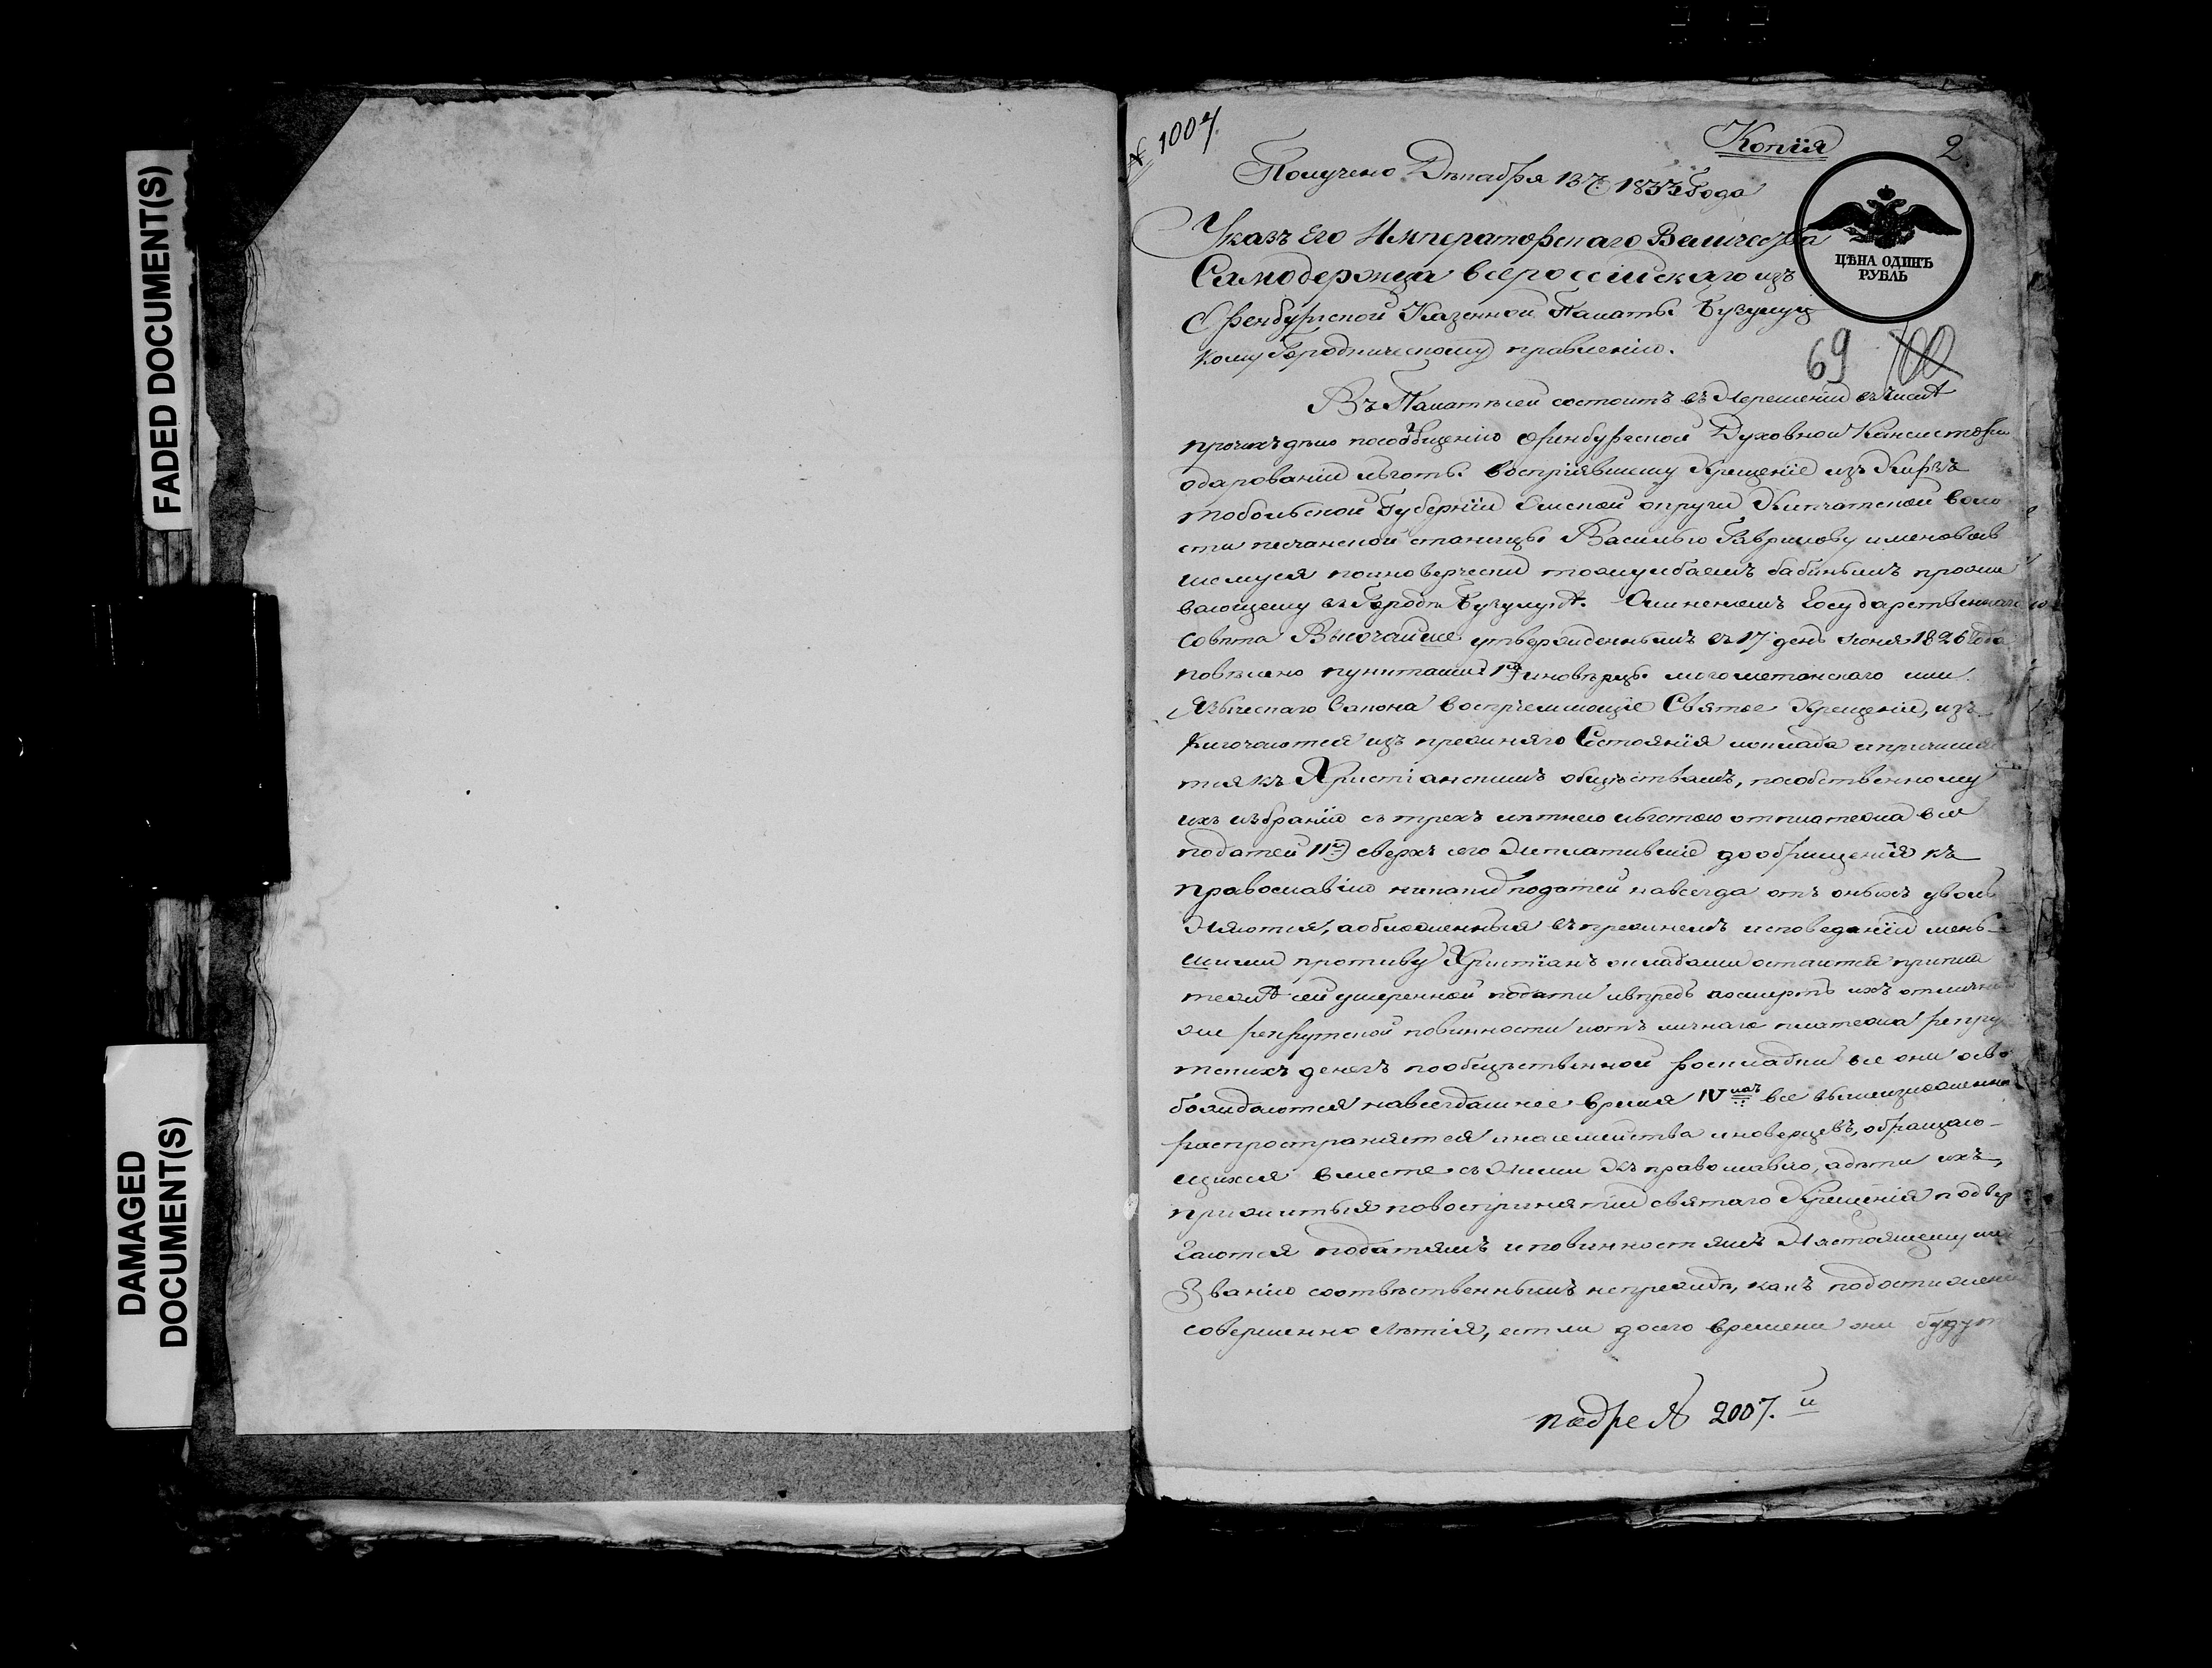 FADED DOCUMENT(S)
DAMAGED
DOCUMENT(S)
№ 1007.
Копія
2.
Получено Декабря 13 ч. 1833 Года
ЦѢНА ОДИНЪ
РУБЛЬ
Указъ Его Императорскаго Величества
Самодержца всероссійскаго изъ
Оренбургской Казенной Палаты Бузулуц
кому Городническому правленію.
69 100
Въ Палатѣ сей состоитъ въ Нерешеніи въ числѣ
прочихъ дѣло по сообщенію Оренбургской Духовной Консистори
о дарованіи льготы воспріявшему Крещеніе изъ Киргизъ
тобольской Губерніи Омской округи Кипчатской воло
сти песчанской станицы Василью Гаврилову именовав
шемуся по иноверчески бабинымъ прожи
вающему въ Городѣ Бузулукѣ. Мненіемъ Государственнаго
совѣта Высочайше утвержденнымъ въ 17 день Іюня 1826 года
повѣлено пунктами 1й иновѣрцы могометанскаго или
Языческаго Закона воспріемлющіе Святое Крещеніе, изъ
ключаются изъ прежняго Состоянія и оклада и причисля
тся къ Христіанскимъ обществамъ, по собственному
ихъ избранію съ трехъ лѣтнею льготою отплатежа всѣ
податей IIй сверхъ сего Неплатившіе до обращенія къ
православію никаких податей навсегда отъ оныхъ уволь
Няются, а обложенныя въ прежнемъ исповеданіи мень-
шими противу Христіанъ окладами остаются при пла
тежѣ сей умеренной подати и впредь по смерть ихъ
же рекрутской повинности и отъ личнаго платежа рекру
тскихъ денегъ по общественной роскладки все они осво
бождаются навсегдашнее время IV все вышеизложенное
распространяется и на семейства иноверцевъ, обращаю-
щихся вместе съ Ними Къ православію, а дѣти ихъ,
прижитыя по воспринятіи святаго Крещенія подвер
гаются податямъ и повинностямъ Настоящему их
Званію соотвѣтственнымъ не прежде, какъ по достиженіи
совершенно Лѣтія, естли до сего времени они будут
2007. й